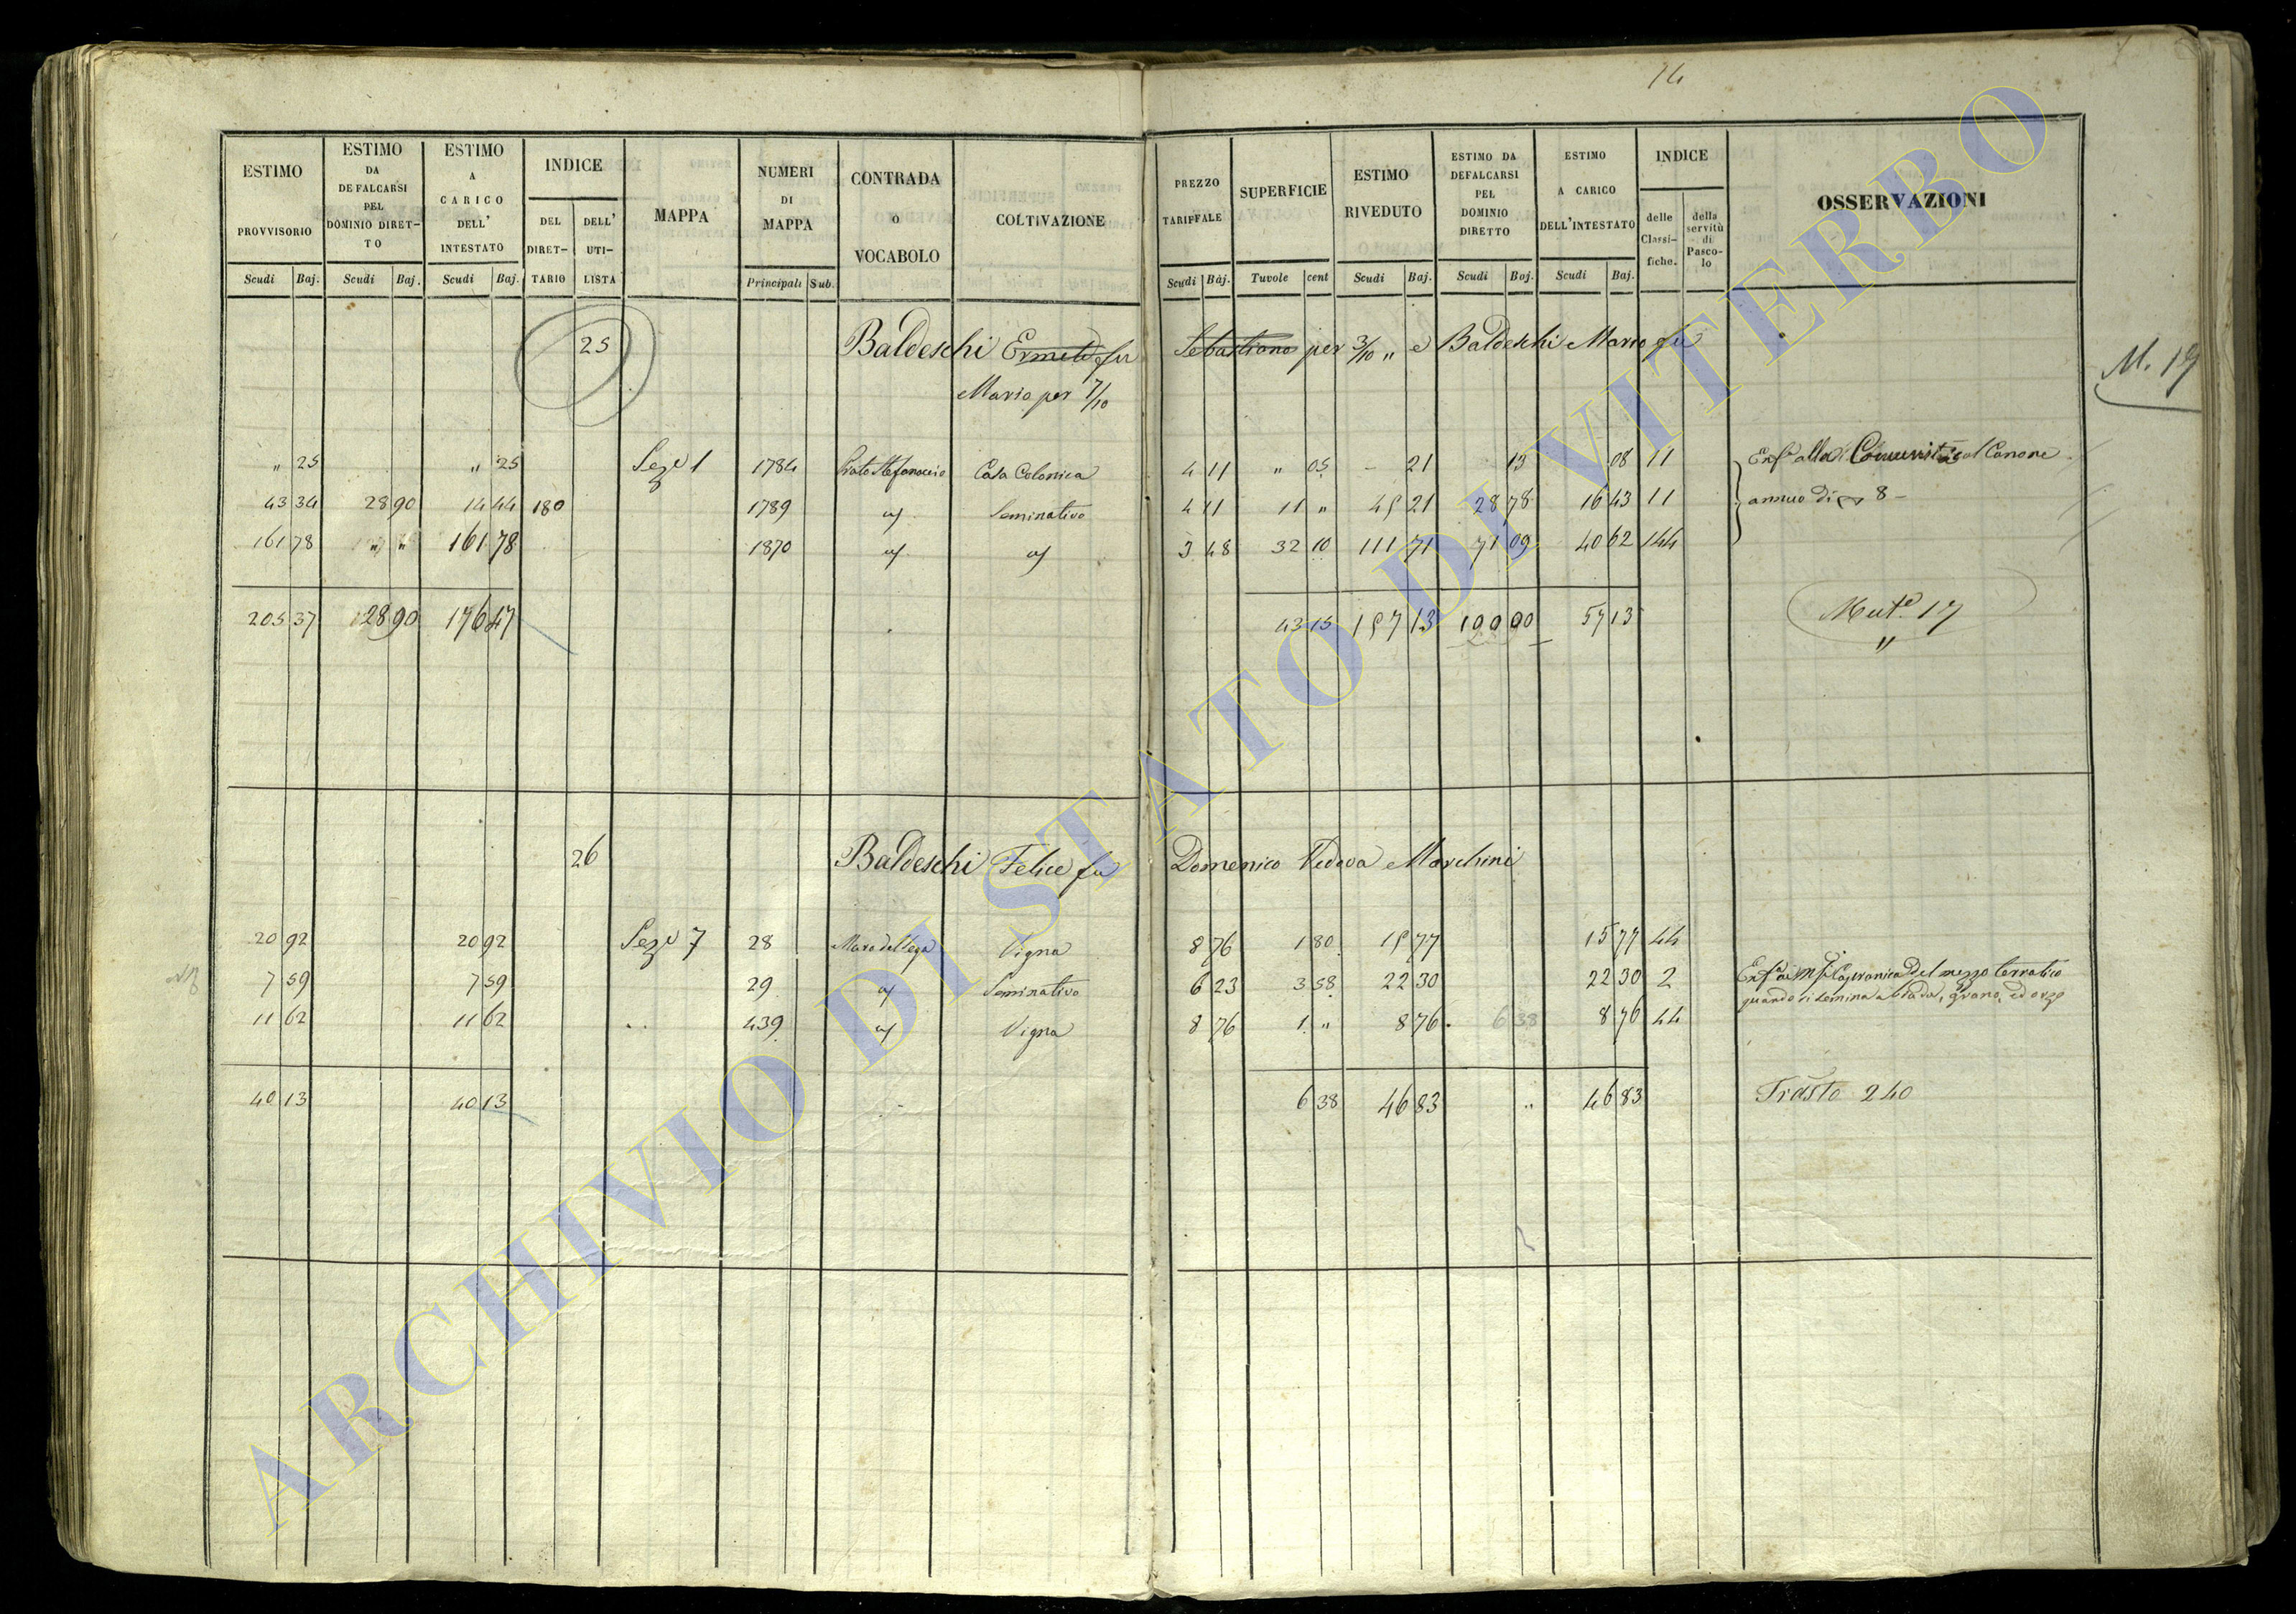 14
ESTIMO PROVVISORIO Scudi Baj.
ESTIMO DA DEFALCARSI PEL DOMINIO DIRET-TO Scudi Baj.
ESTIMO A CARICO DELL' INTESTATO Scudi Baj.
INDICE DEL DIRET-TARIO DELL' UTI-LISTA
MAPPA
NUMERI DI MAPPA Principali Sub.
CONTRADA O VOCABOLO
COLTIVAZIONE
PREZZO TARIFFALE Scudi Baj.
SUPERFICIE Tavole cent
ESTIMO RIVEDUTO Scudi Baj.
ESTIMO DA DEFALCARSI PEL DOMINIO DIRETTO Scudi Baj.
ESTIMO A CARICO DELL'INTESTATO Scudi Baj.
INDICE delle Classi-fiche. della servitù di Pasco-lo
OSSERVAZIONI
25 Baldeschi Ermete fu Sebastiano per 3/10 " e Baldeschi Mario fu
Mario per 7/10
M. 19
" 25 " 25 Sez.e 1 1784 Prato Stefanaccio Casa Colonica 4 11 " 05 - 21 13 08 11 Enf.a alla Comunità col Canone
43 34 28 90 14 44 180 1789 Seminativo 4 11 11 " 45 21 28 78 16 43 11 annuo di 8 -
161 78 " " 161 78 1870 3 48 32 10 111 71 71 09 40 62 144
205 37 28 90 176 47 43 15 157 13 100 00 57 13 Mut.e 17
"
26 Baldeschi Felice fu Domenico Vedova Marchini
20 92 20 92 Sez.e 7 28 Vigna 8 76 1 80 15 77 15 77 44
7 59 7 59 29 Seminativo 6 23 3 58 22 30 22 30 2 Capranica del mezzo terratico
quando si semina a biada, grano, ed orzo
11 62 11 62 439 Vigna 8 76 1 " 8 76 6 38 8 76 44
40 13 40 13 6 38 46 83 " 46 83 Trasto 240
ARCHIVIO DI STATO DI VITERBO